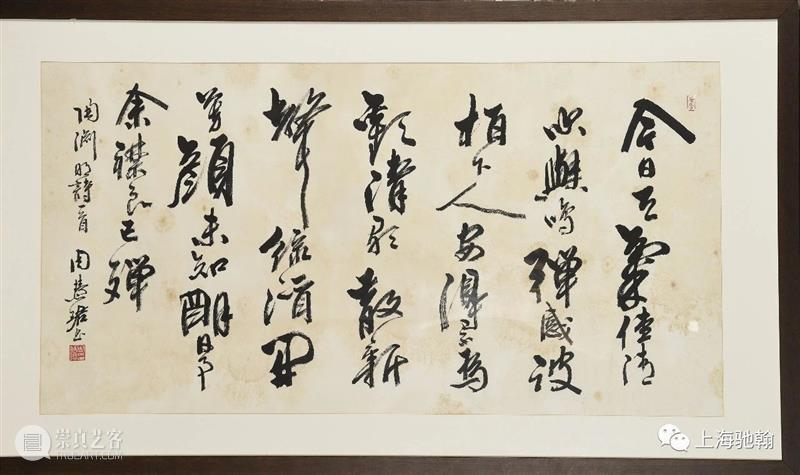 今日天氣佳清
吹與鳴彈感彼
柏下人安得不為
歡清歌散新
聲綠酒開
芳顏未知明日事
余襟良已殫
陶淵明詩一首 周慧珺书
崇真艺客
TRUEART.COM
上海驰翰